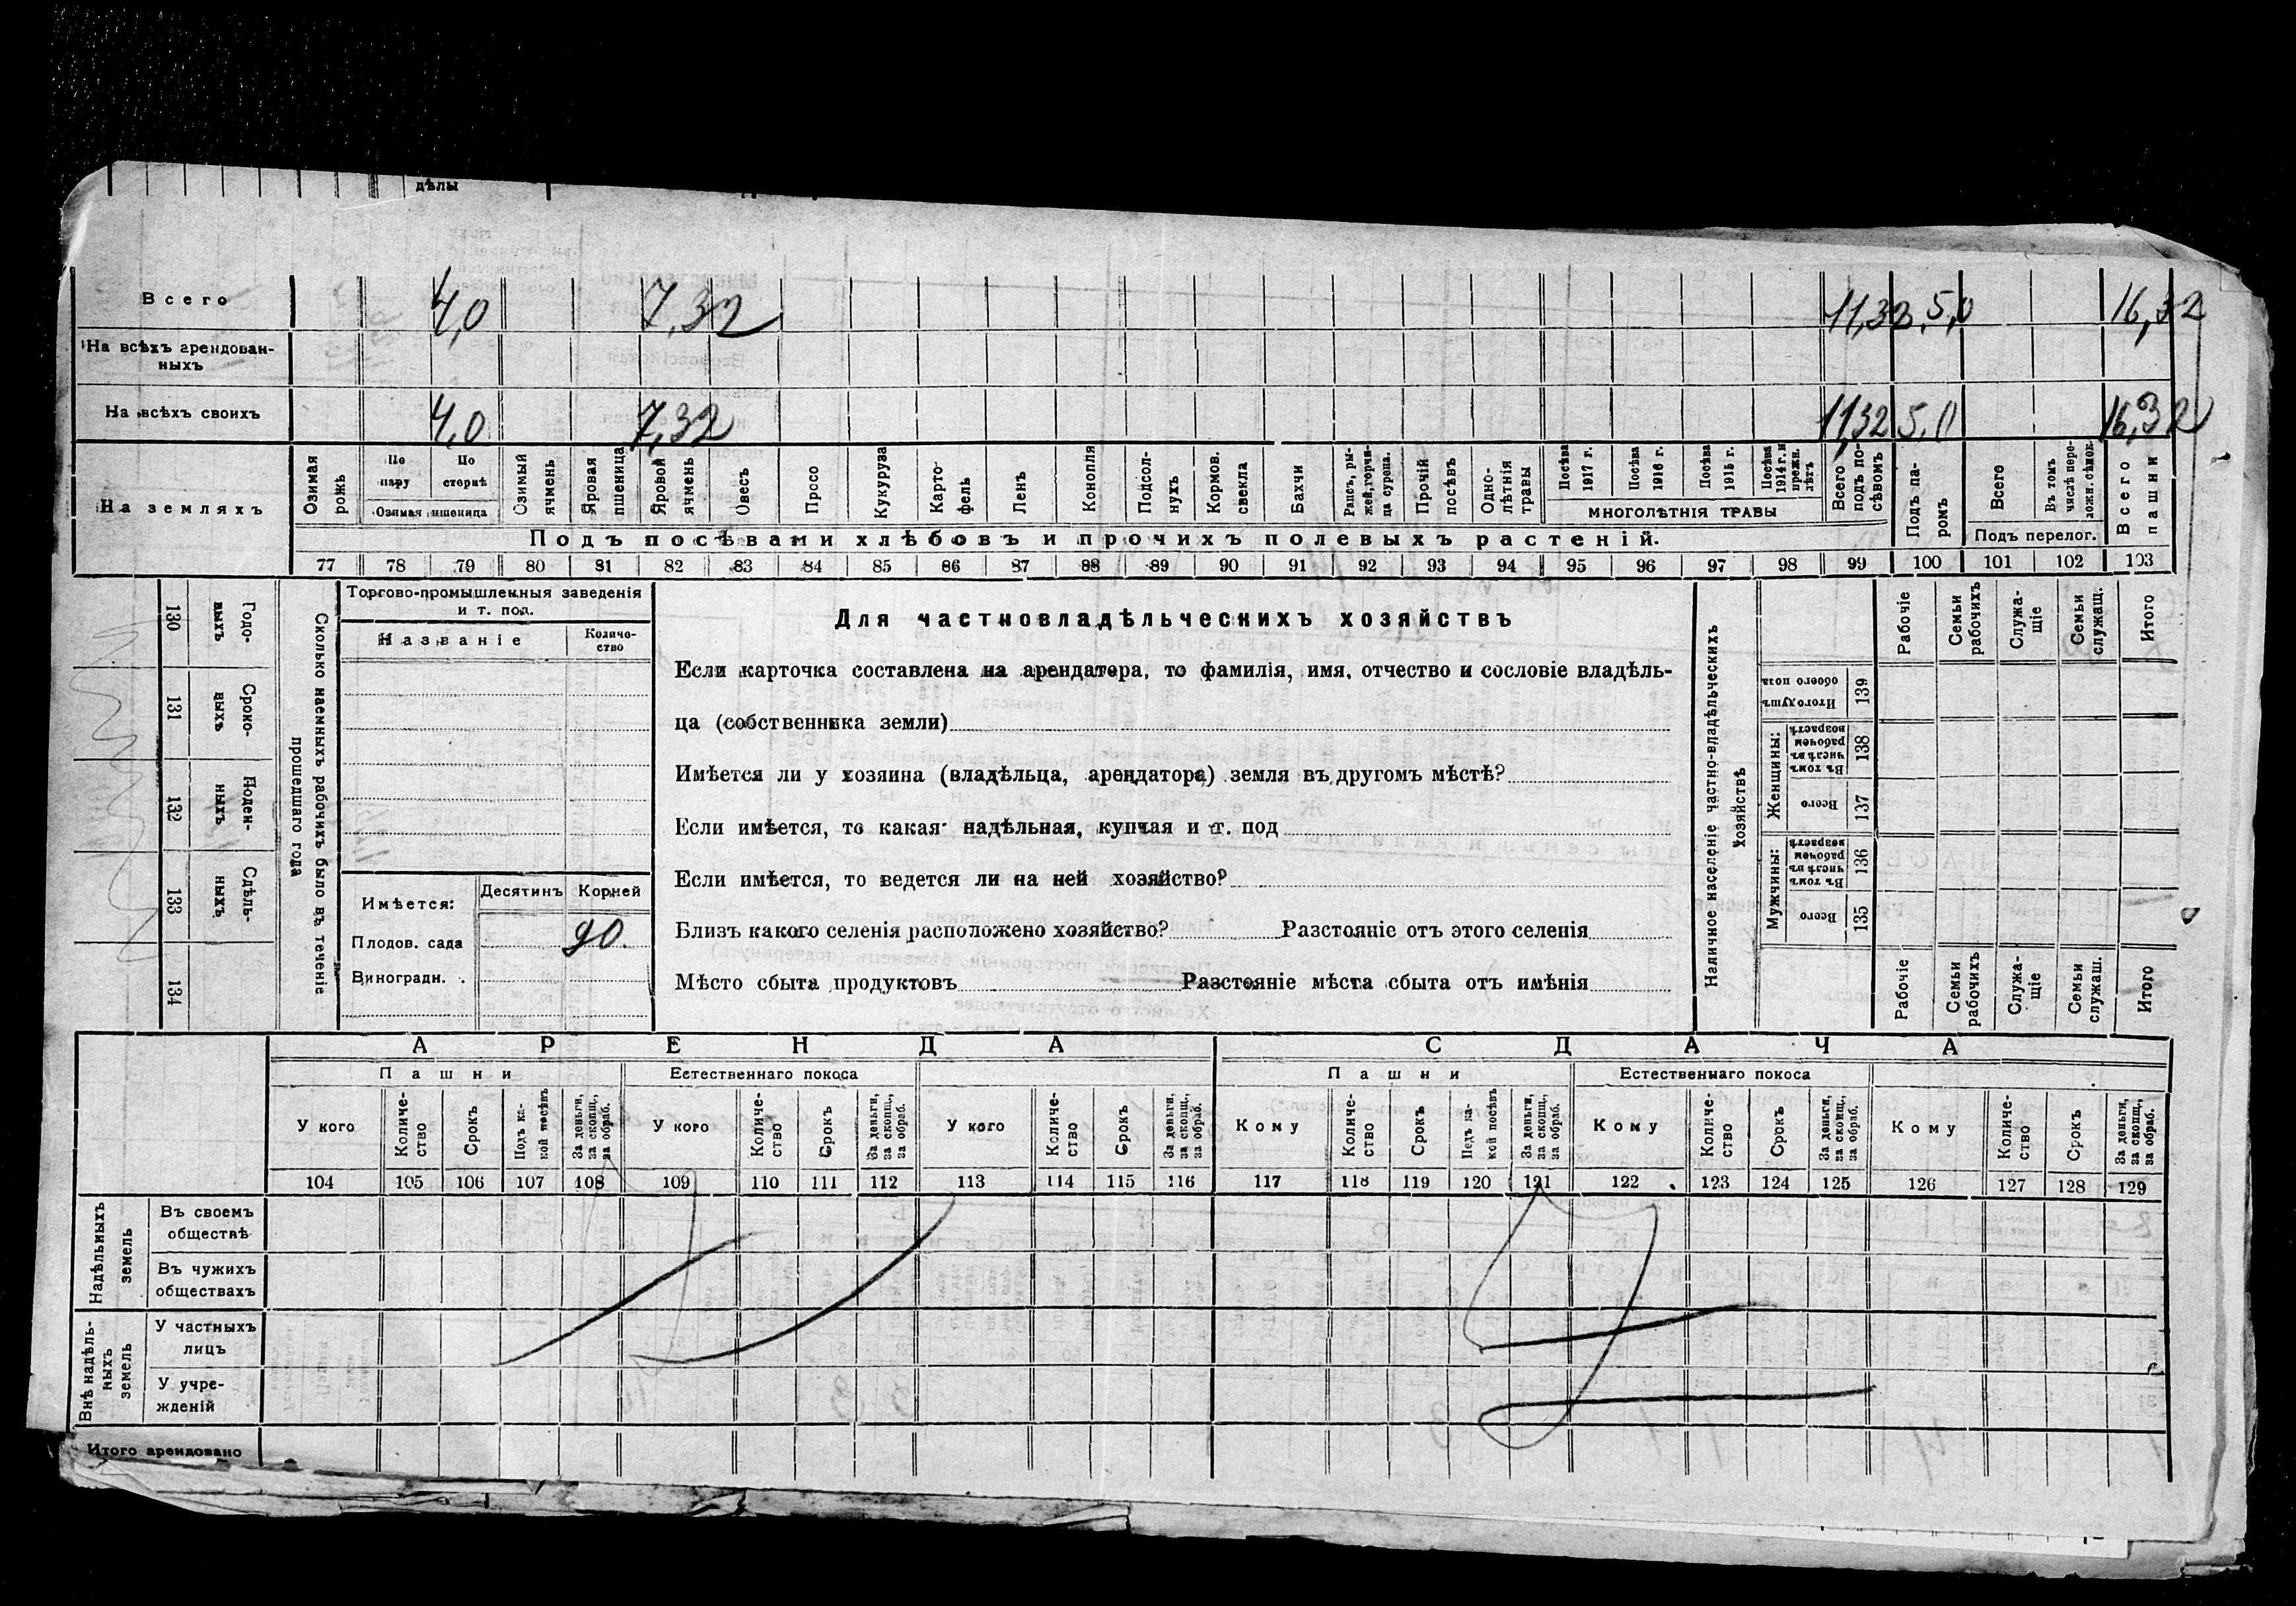 дѣлы
Всего 4,0 7,32 11,32 5,0 16,32
На всѣхъ арендован-
ныхъ
На всѣхъ своихъ 4,0 7,32 11,32 5,0 16,32
На земляхъ
Озимая рожь
По пару
По стернѣ
Озимая пшеница
Озимый ячмень
Яровая пшеница
Яровой ячмень
Овесъ
Просо
Кукуруза
Карто-
фель
Ленъ
Конопля
Подсол-
нухъ
Кормов. свекла
Бахчи
Рапсъ, ры-
жей, горчи-
ца сурепа.
Прочій посѣвъ
Одно-
лѣтнія травы
Посѣва 1917 г.
Посѣва 1916 г.
Посѣва 1915 г.
Посѣва 1914 г. и прежн. лѣтъ
МНОГОЛѢТНІЯ ТРАВЫ
Всего подъ по-
сѣвомъ
Подъ па-
ромъ
Всего
Въ томъ числѣ пере-
ложн. сѣнок.
Подъ перелог.
Всего пашни
Подъ посѣвами хлѣбовъ и прочихъ полевыхъ растеній.
77 78 79 80 81 82 83 84 85 86 87 88 89 90 91 92 93 94 95 96 97 98 99 100 101 102 103
130 Годо-
выхъ
131 Сроко-
ныхъ
132 Поден-
ныхъ
133 Сдѣль-
ныхъ
134
Сколько наемныхъ рабочихъ было въ теченіе
прошедшаго года
Торгово-промышленныя заведенія
и т. под.
Названіе
Количе-
ство
Имѣется:
Десятинъ
Корней
Плодов. сада 90.
Виноградн.
Для частновладѣльческихъ хозяйствъ
Если карточка составлена на арендатора, то фамилія, имя, отчество и сословіе владѣль-
ца (собственника земли)
Имѣется ли у хозяина (владѣльца, арендатора) земля въ другомъ мѣстѣ?
Если имѣется, то какая надѣльная, купчая и т. под
Если имѣется, то ведется ли на ней хозяйство?
Близъ какого селенія расположено хозяйство? Разстояніе отъ этого селенія
Мѣсто сбыта продуктовъ Разстояніе мѣста сбыта отъ имѣнія
Наличное населеніе частно-владѣльческихъ
хозяйствѣ
Рабочіе
Семьи рабочихъ
Служа-
щіе
Семьи служащ.
Итого
Итого душ обоего пола 139
Женщины:
Въ томъ числѣ въ рабочем возрастѣ 138
Всего 137
Мужчины:
Въ томъ числѣ въ рабочем возрастѣ 136
Всего 135
Рабочіе
Семьи рабочихъ
Служа-
щіе
Семьи служаш.
Итого
АРЕНДА СДАЧА
Пашни Естественнаго покоса Пашни Естественнаго покоса
У кого
Количе-
ство
Срокъ
Подъ ка-
кой посѣвъ
За деньги,
за скопщ.,
за обраб.
У кого
Количе-
ство
Срокъ
За деньги,
за скопщ.,
за обраб.
У кого
Количе-
ство
Срокъ
За деньги,
за скопщ.,
за обраб.
Кому
Количе-
ство
Срокъ
Подъ ка-
кой посѣвъ
За деньги,
за скопщ.,
за обраб.
Кому
Количе-
ство
Срокъ
За деньги,
за скопщ.,
за обраб.
Кому
Количе-
ство
Срокъ
За деньги,
за скопщ.,
за обраб.
104 105 106 107 108 109 110 111 112 113 114 115 116 117 118 119 120 121 122 123 124 125 126 127 128 129
Надѣльныхъ
земель
Въ своемъ
обществѣ
Въ чужихъ
обществахъ
Внѣ надѣль-
ныхъ
земель
У частныхъ
лицъ
У учре-
жденій
Итого арендовано